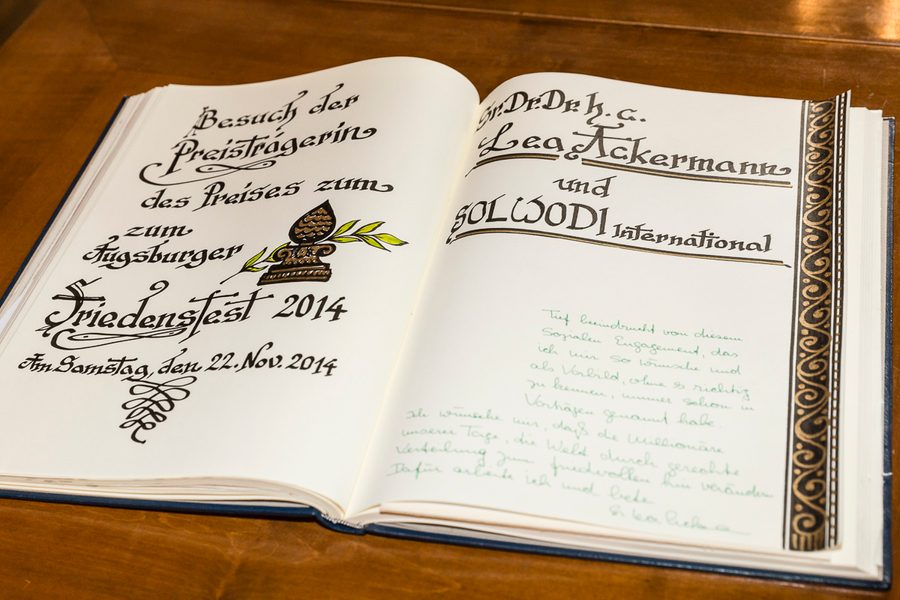 Besuch der
Preisträgerin
des Preises zum
zum
Augsburger
Friedensfest 2014
Am Samstag, den 22. Nov. 2014
Sr. Dr. Dr. h. c.
Lea Ackermann
und
SOLWODI International
Tief beeindruckt von diesem
Sozialen Engagement, das
ich mir so wünsche und
als Vorbild, ohne es richtig
zu kennen, immer schon in
Vorträgen genannt habe.
Ich wünsche mir, daß die Millionäre
unserer Tage, die Welt durch gerechte
Verteilung zum friedvollen hin verändern
Dafür arbeite ich und bete